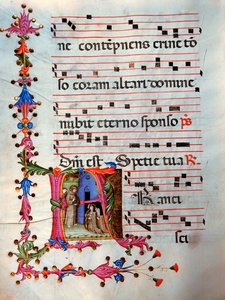 ne contēpnens cruētto
so coram altari domine
nubit eterno sponso ps
Dn̄i est Spetie tua R
Ranci
sci